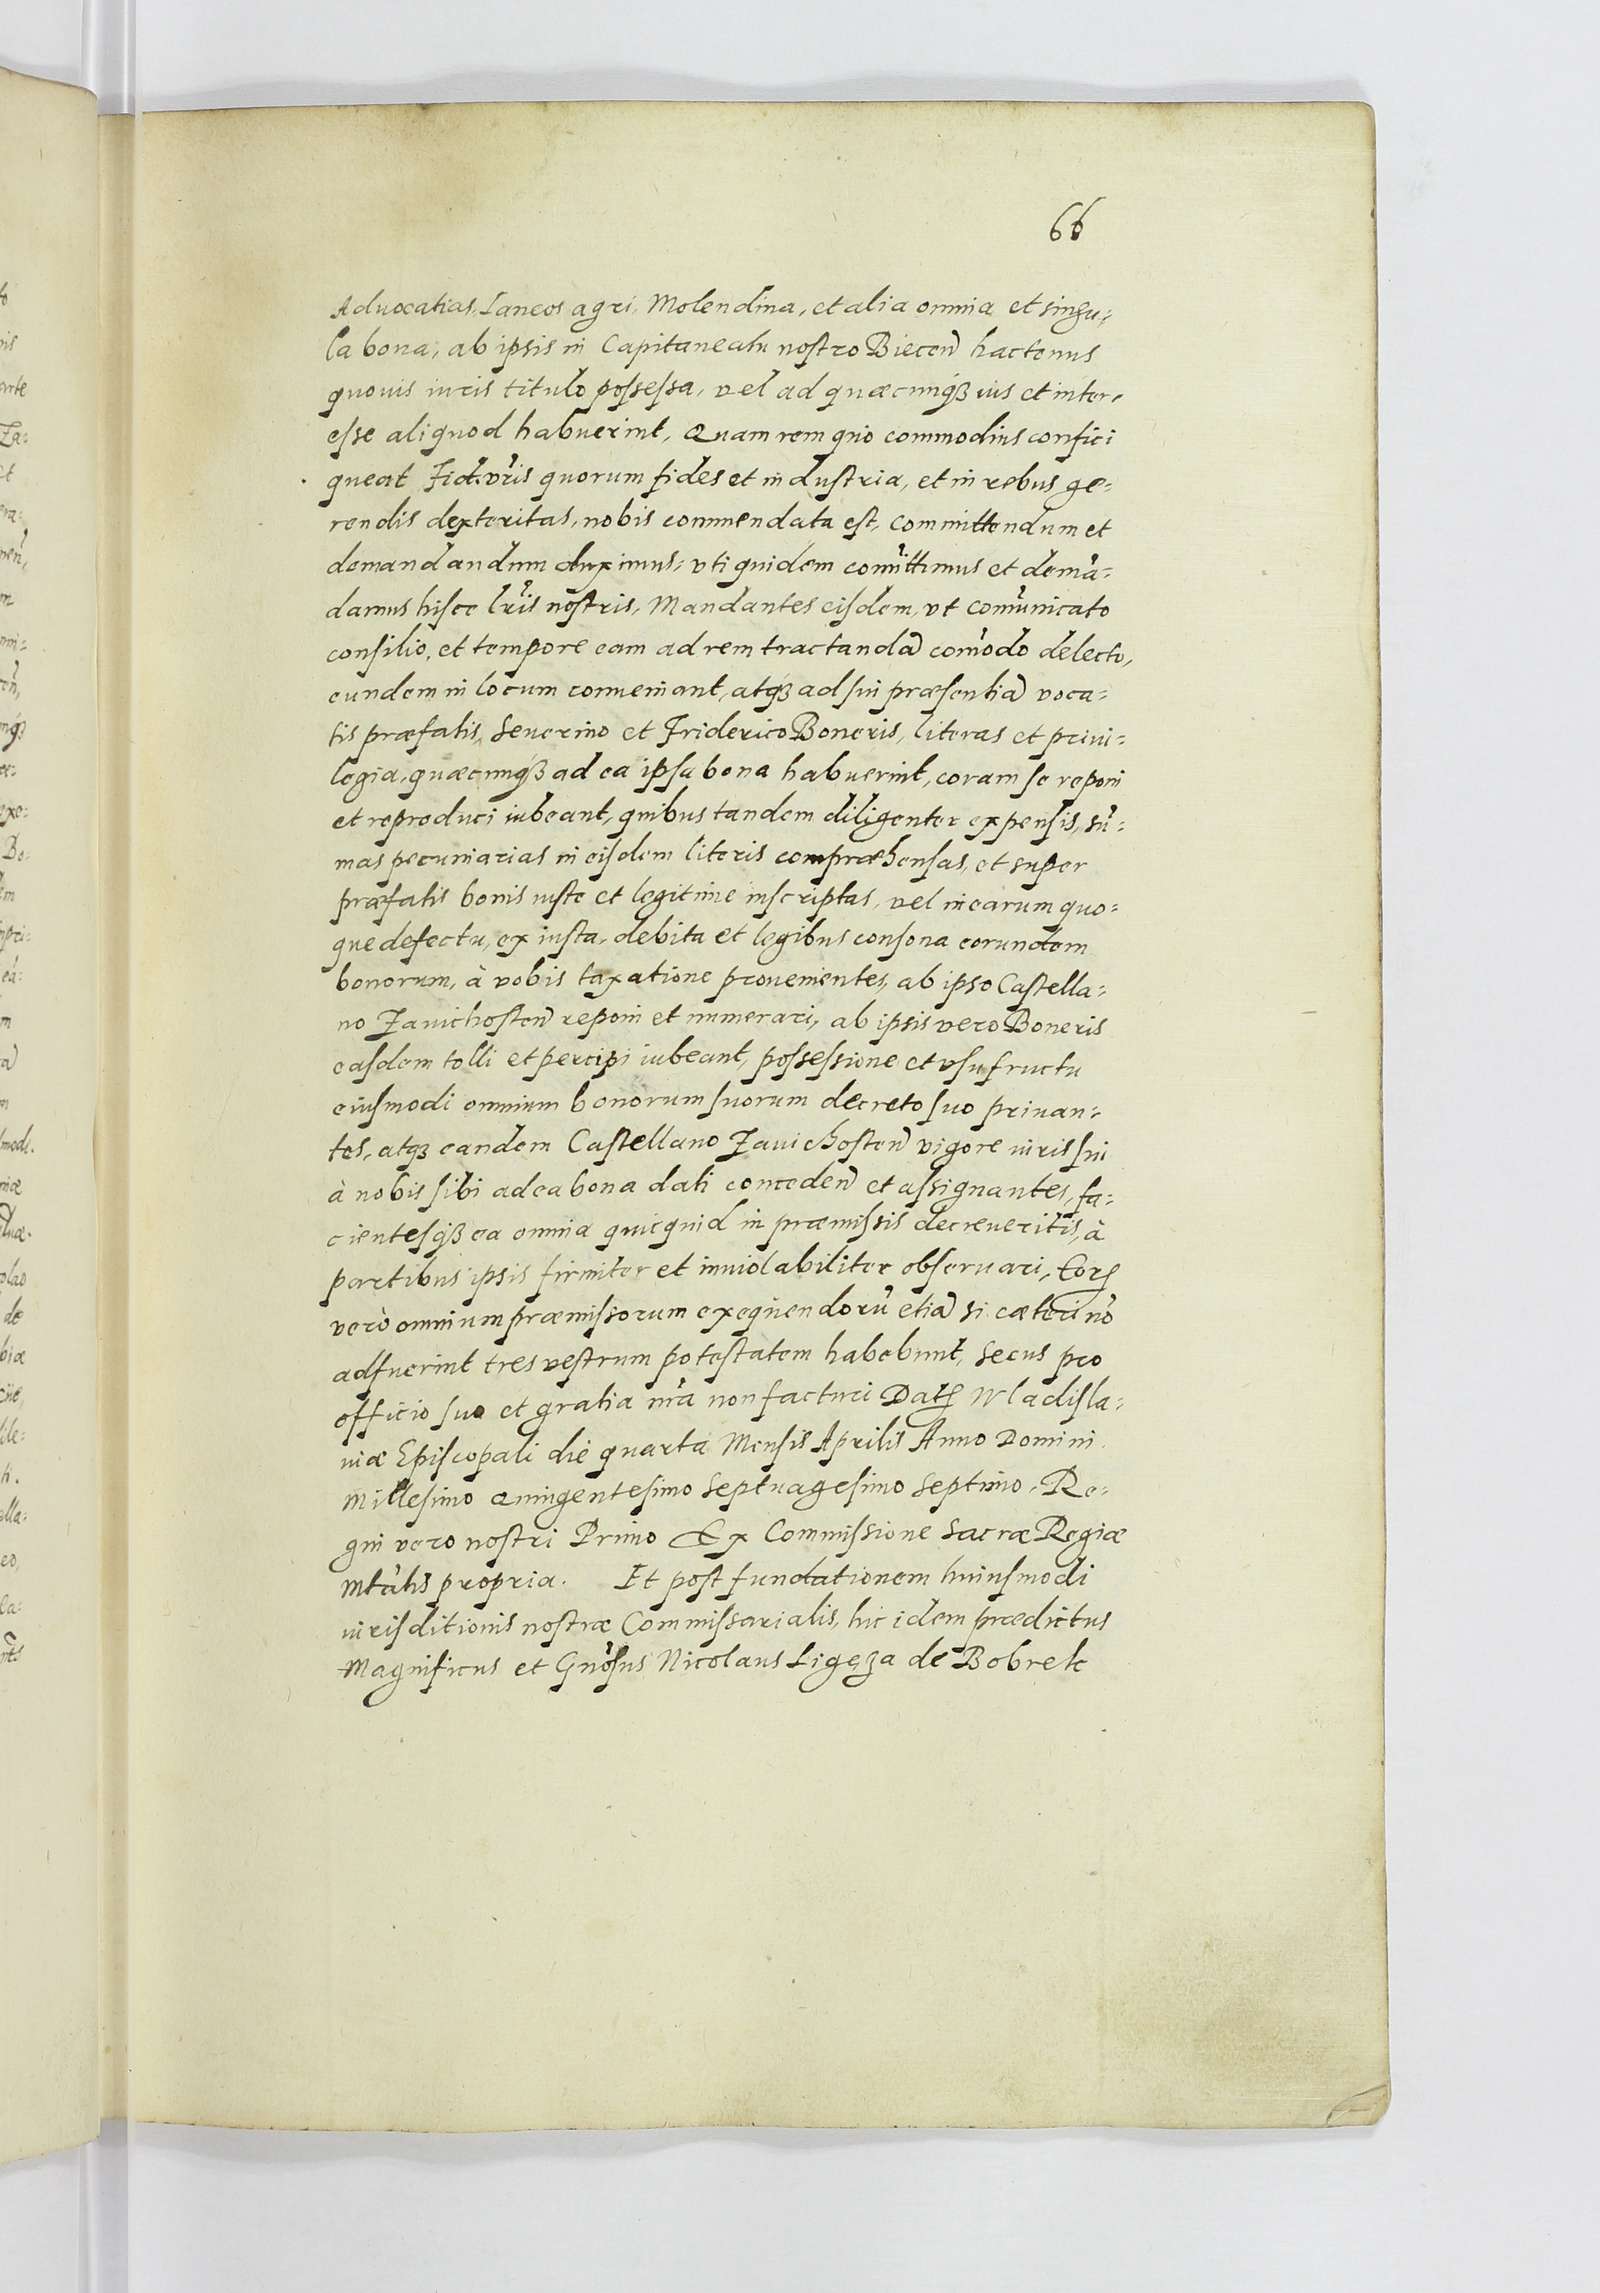 66
Advocatias, Laneos agri, Molendina, et alia omnia et singu=
la bona, ab ipsis in Capitaneatu nostro Biecen̄ hactenus
quouis iuris titulo possessa, vel ad quæcunq́ꝫ ius et inter=
esse aliquod habuerint, Quam rem quo commodius confici
queat Fid. vr̄is quorum fides et industria, et in rebus ge=
rendis dexteritas, nobis commendata est, committendum et
demandandum duximus, vti quidem com̄ittimus et demā=
damus hisce lr̄is nostris, Mandantes eisdem, vt com̄unicato
consilio, et tempore eam ad rem tractandā com̄odo delecto,
eundem in locum conueniant, atq́ꝫ ad sui præsentiā voca=
tis præfatis, Seuerino et Friderico Boneris, literas et priui=
legia, quæcunq́ꝫ ad ea ipsa bona habuerint, coram se reponi
et reproduci iubeant, quibus tandem diligenter expensis, sū=
mas pecuniarias in eisdem literis compræhensas, et super
præfatis bonis iuste et legitime inscriptas, vel in earum quo=
que defectu, ex iusta, debita et legibus consona eorundem
bonorum, à vobis taxatione prouenientes, ab ipso Castella=
no Zauichosten̄ reponi et numerari, ab ipsis vero Boneris
easdem tolli et percipi iubeant, possessione et vsufructu
eiusmodi omnium bonorum suorum decreto suo priuan=
tes, atqꝫ eandem Castellano Zauichosten̄ vigore iuris sui
à nobis sibi ad ea bona dati conceden̄ et assignantes, fa=
cientesq́ꝫ ea omnia quicquid in præmissis decreueritis, à
partibus ipsis firmiter et inuiolabiliter obseruari, Eorꝫ
verò omnium præmissorum exequendorū etiā si cæteri nō
adfuerint tres vestrum potestatem habebunt, Secus pro
officio suo et gratia nr̄a non facturi Datꝫ Wladisla=
uiæ Episcopali die quarta Mensis Aprilis Anno Domini
Millesimo Quingentesimo Septuagesimo Septimo, Re=
gni vero nostri Primo Ex Commissione Sacræ Regiæ
Mtātis propria. Et post fundationem huiusmodi
iurisditionis nostræ Commissarialis, hic idem prædictus
Magnificus et Gn̄osus Nicolaus Ligęza de Bobrek